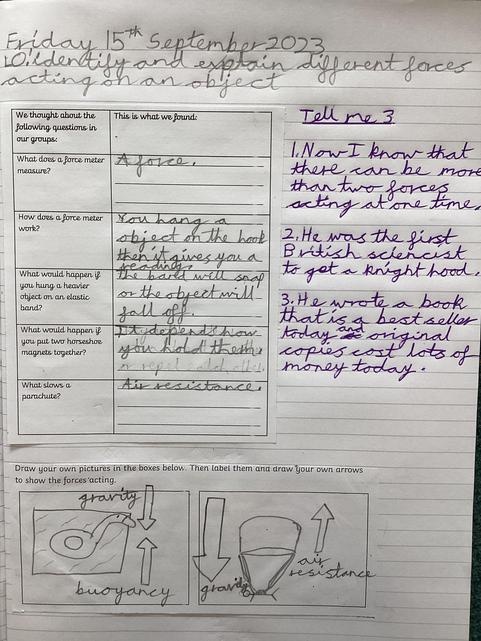 Friday 15th September 2023
LO: identify and explain different forces
acting on an object
We thought about the
following questions in
our groups:
This is what we found:
What does a force meter
measure?
A force.
How does a force meter
work?
You hang a
object on the hook
then it gives you a
reading.
What would happen if
you hung a heavier
object on an elastic
band?
the band will snap
or the object will
fall off.
What would happen if
you put two horseshoe
magnets together?
It depends how
you hold them
or repel
What slows a
parachute?
Air resistance.
Tell me 3
1. Now I know that
there can be more
than two forces
acting at one time.
2. He was the first
British scientist
to get a knight hood.
3. He wrote a book
that is a best seller
today and original
copies cost lots of
money today.
Draw your own pictures in the boxes below. Then label them and draw your own arrows
to show the forces acting.
gravity
buoyancy
gravity
air
resistance